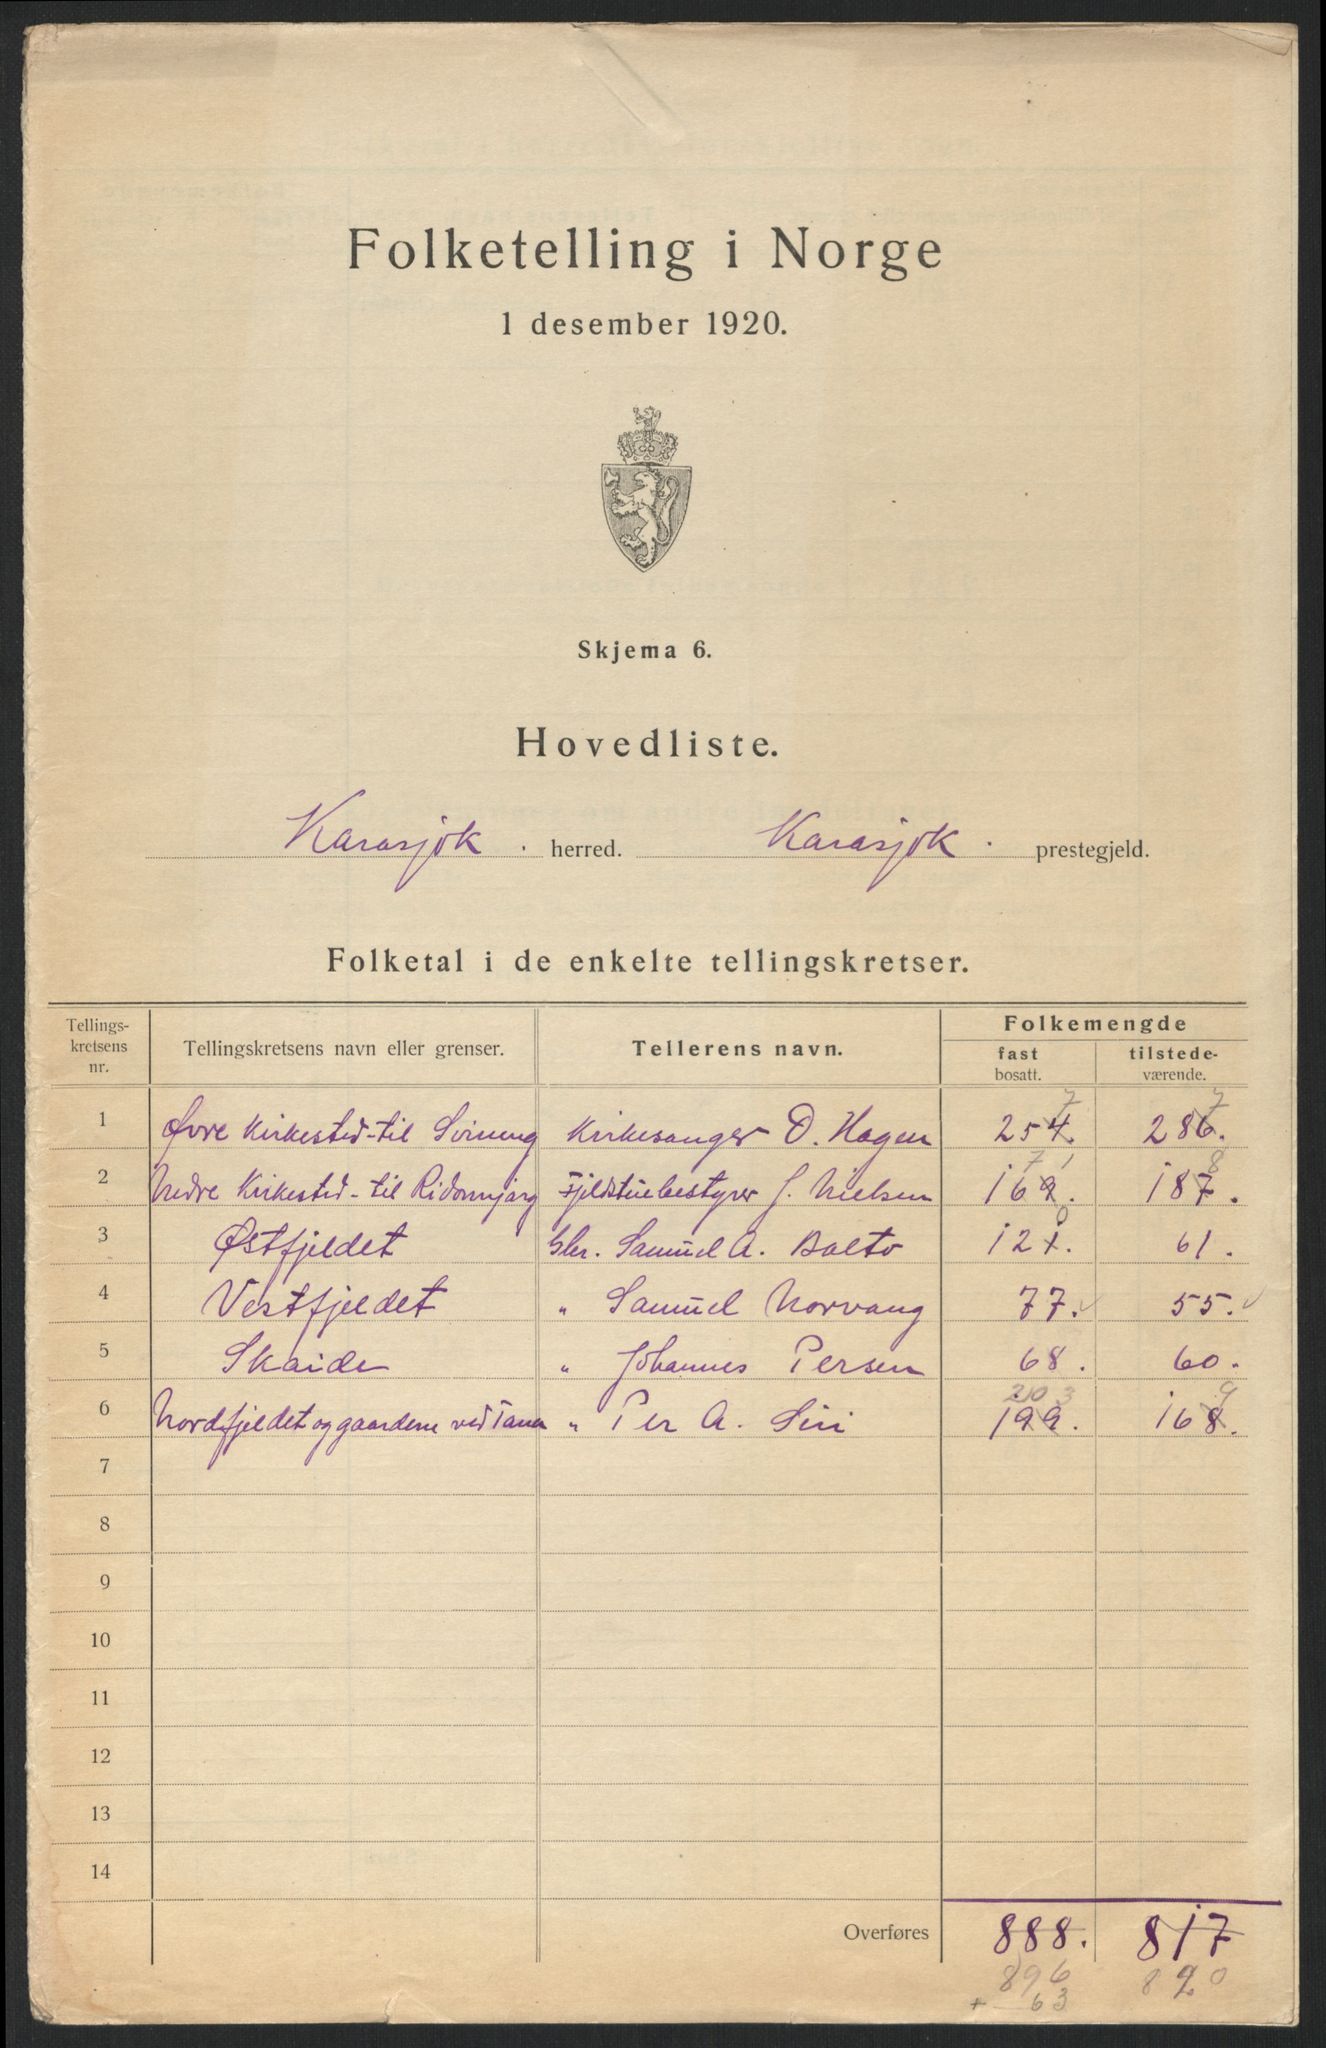 Folketelling i Norge
1 desember 1920.
Skjema 6.
Hovedliste.
Karasjok . herred. Karasjok . prestegjeld.
Folketal i de enkelte tellingskretser.
Tellings-kretsens nr. Tellingskretsens navn eller grenser. Tellerens navn. Folkemengde fast bosatt. tilstede-værende.
7 7
1 Øvre Kirkested - til Svineng Kirkesanger O. Hagen 254. 286.
7 1 8
2 Nedre Kirkested - til Ridonnjarg Fjeldstuebestyrer J. Nielsen 169. 187.
0
3 Østfjeldet Gbr. Samuel A. Balto 121. 61.
4 Vestfjeldet " Samuel Norvang 77. 55.
5 Skaide " Johannes Persen 68. 60.
203 9
6 Nordfjeldet og gaardene ved Tana " Per A. Siri 199. 168.
7
8
9
10
11
12
13
14
Overføres 888. 817
896 820
+ 63